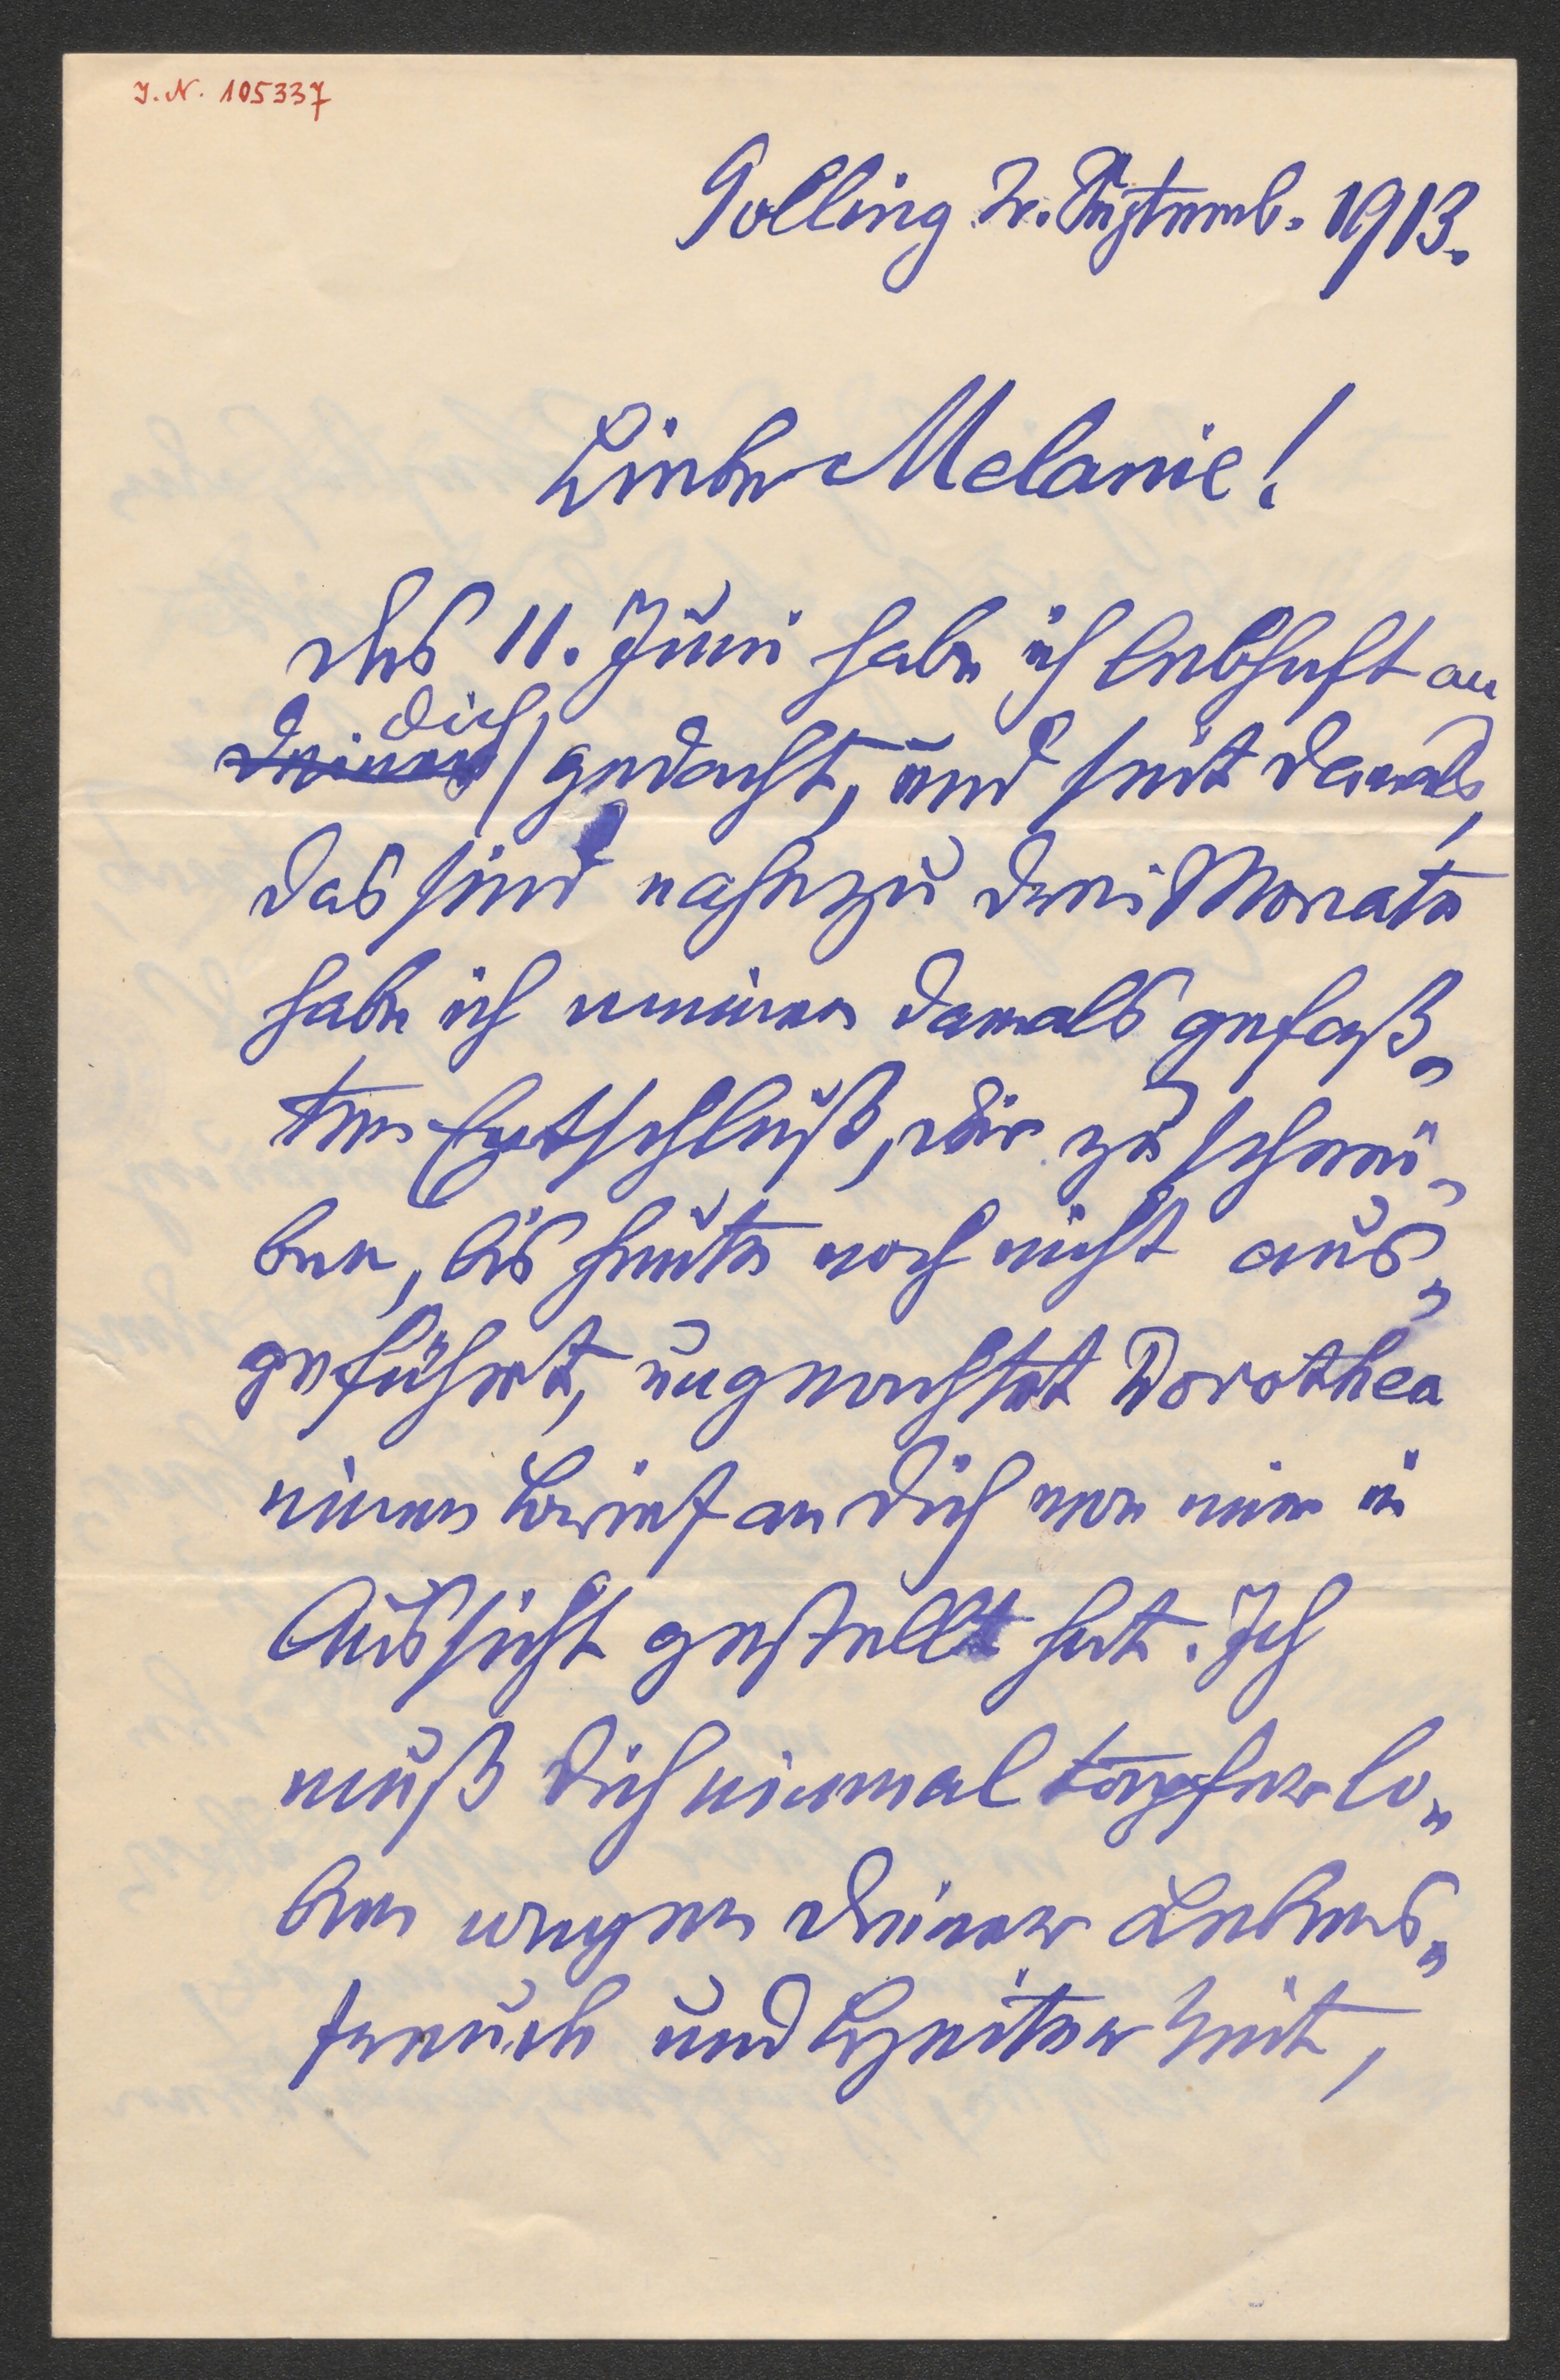 J. N. 105337
Golling 2. Septemb. 1913.
Liebe Melanie!
Des 11. Juni habe ich lebhaft an
Deiner dich gedacht, und seit damals,
das sind nahezu drei Monate
habe ich meinen damals gefaß„
ten Entschluß, dir zu schrei„
ben, bis heute noch nicht aus„
geführt, ungeachtet Dorothea
einen Brief an dich von mir in
Aussicht gestellt hat. Ich
muß dich einmal tapfer lo„
ben wegen deiner Lebens„
freude und Heiterkeit,